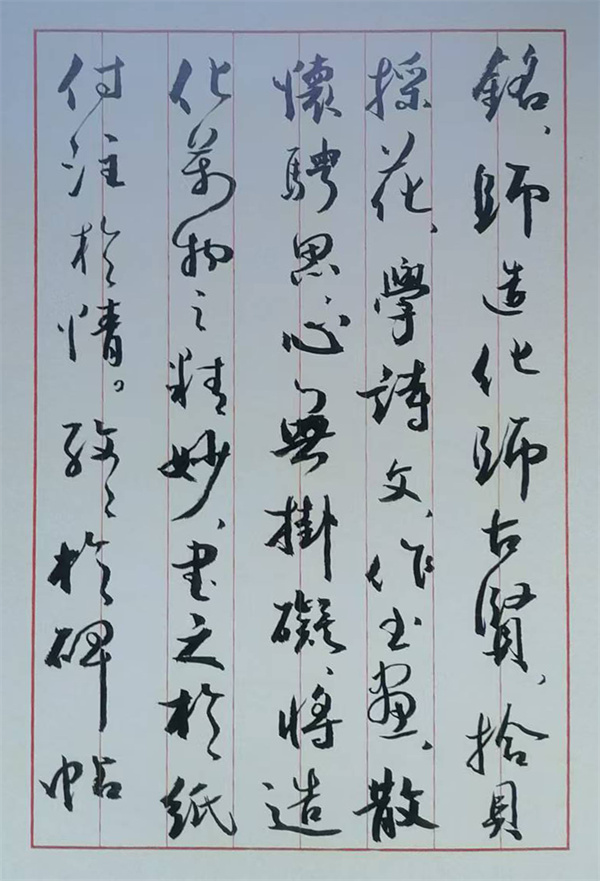 銘、師造化師古賢、拾貝
採花、學詩文、作書畫、散
懷騁思、心無掛礙、將造
化萬物之精妙、書之於紙
付注於情。孜孜於碑帖